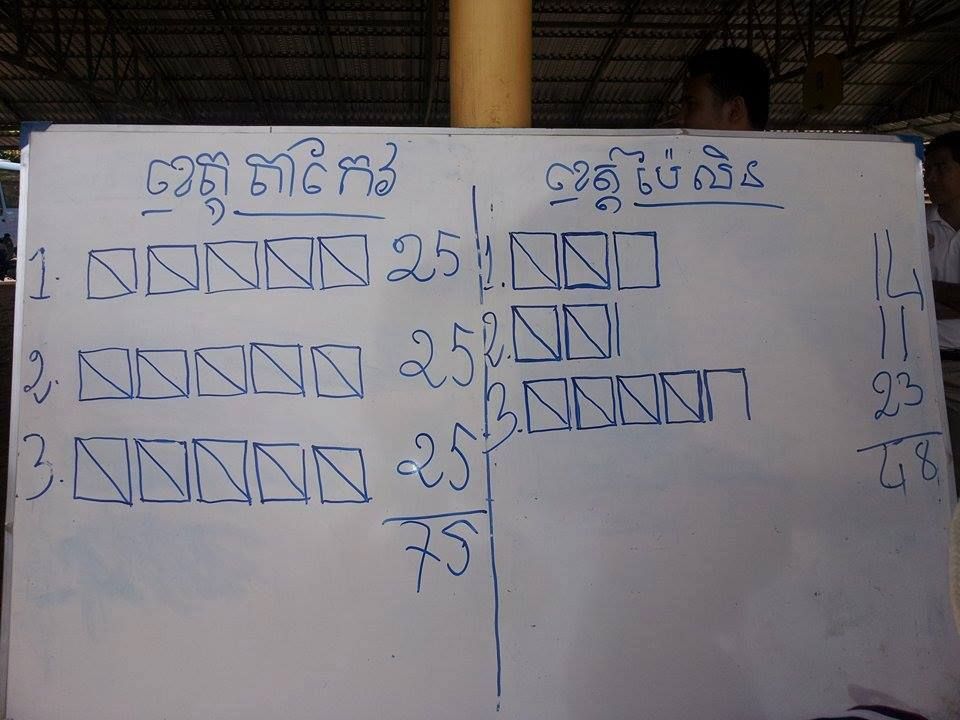 ខេត្ត តាកែវ
1. 25
2. 25
3. 25
75
ខេត្ត ប៉ៃលិន
1. 14
2. 11
3. 23
48